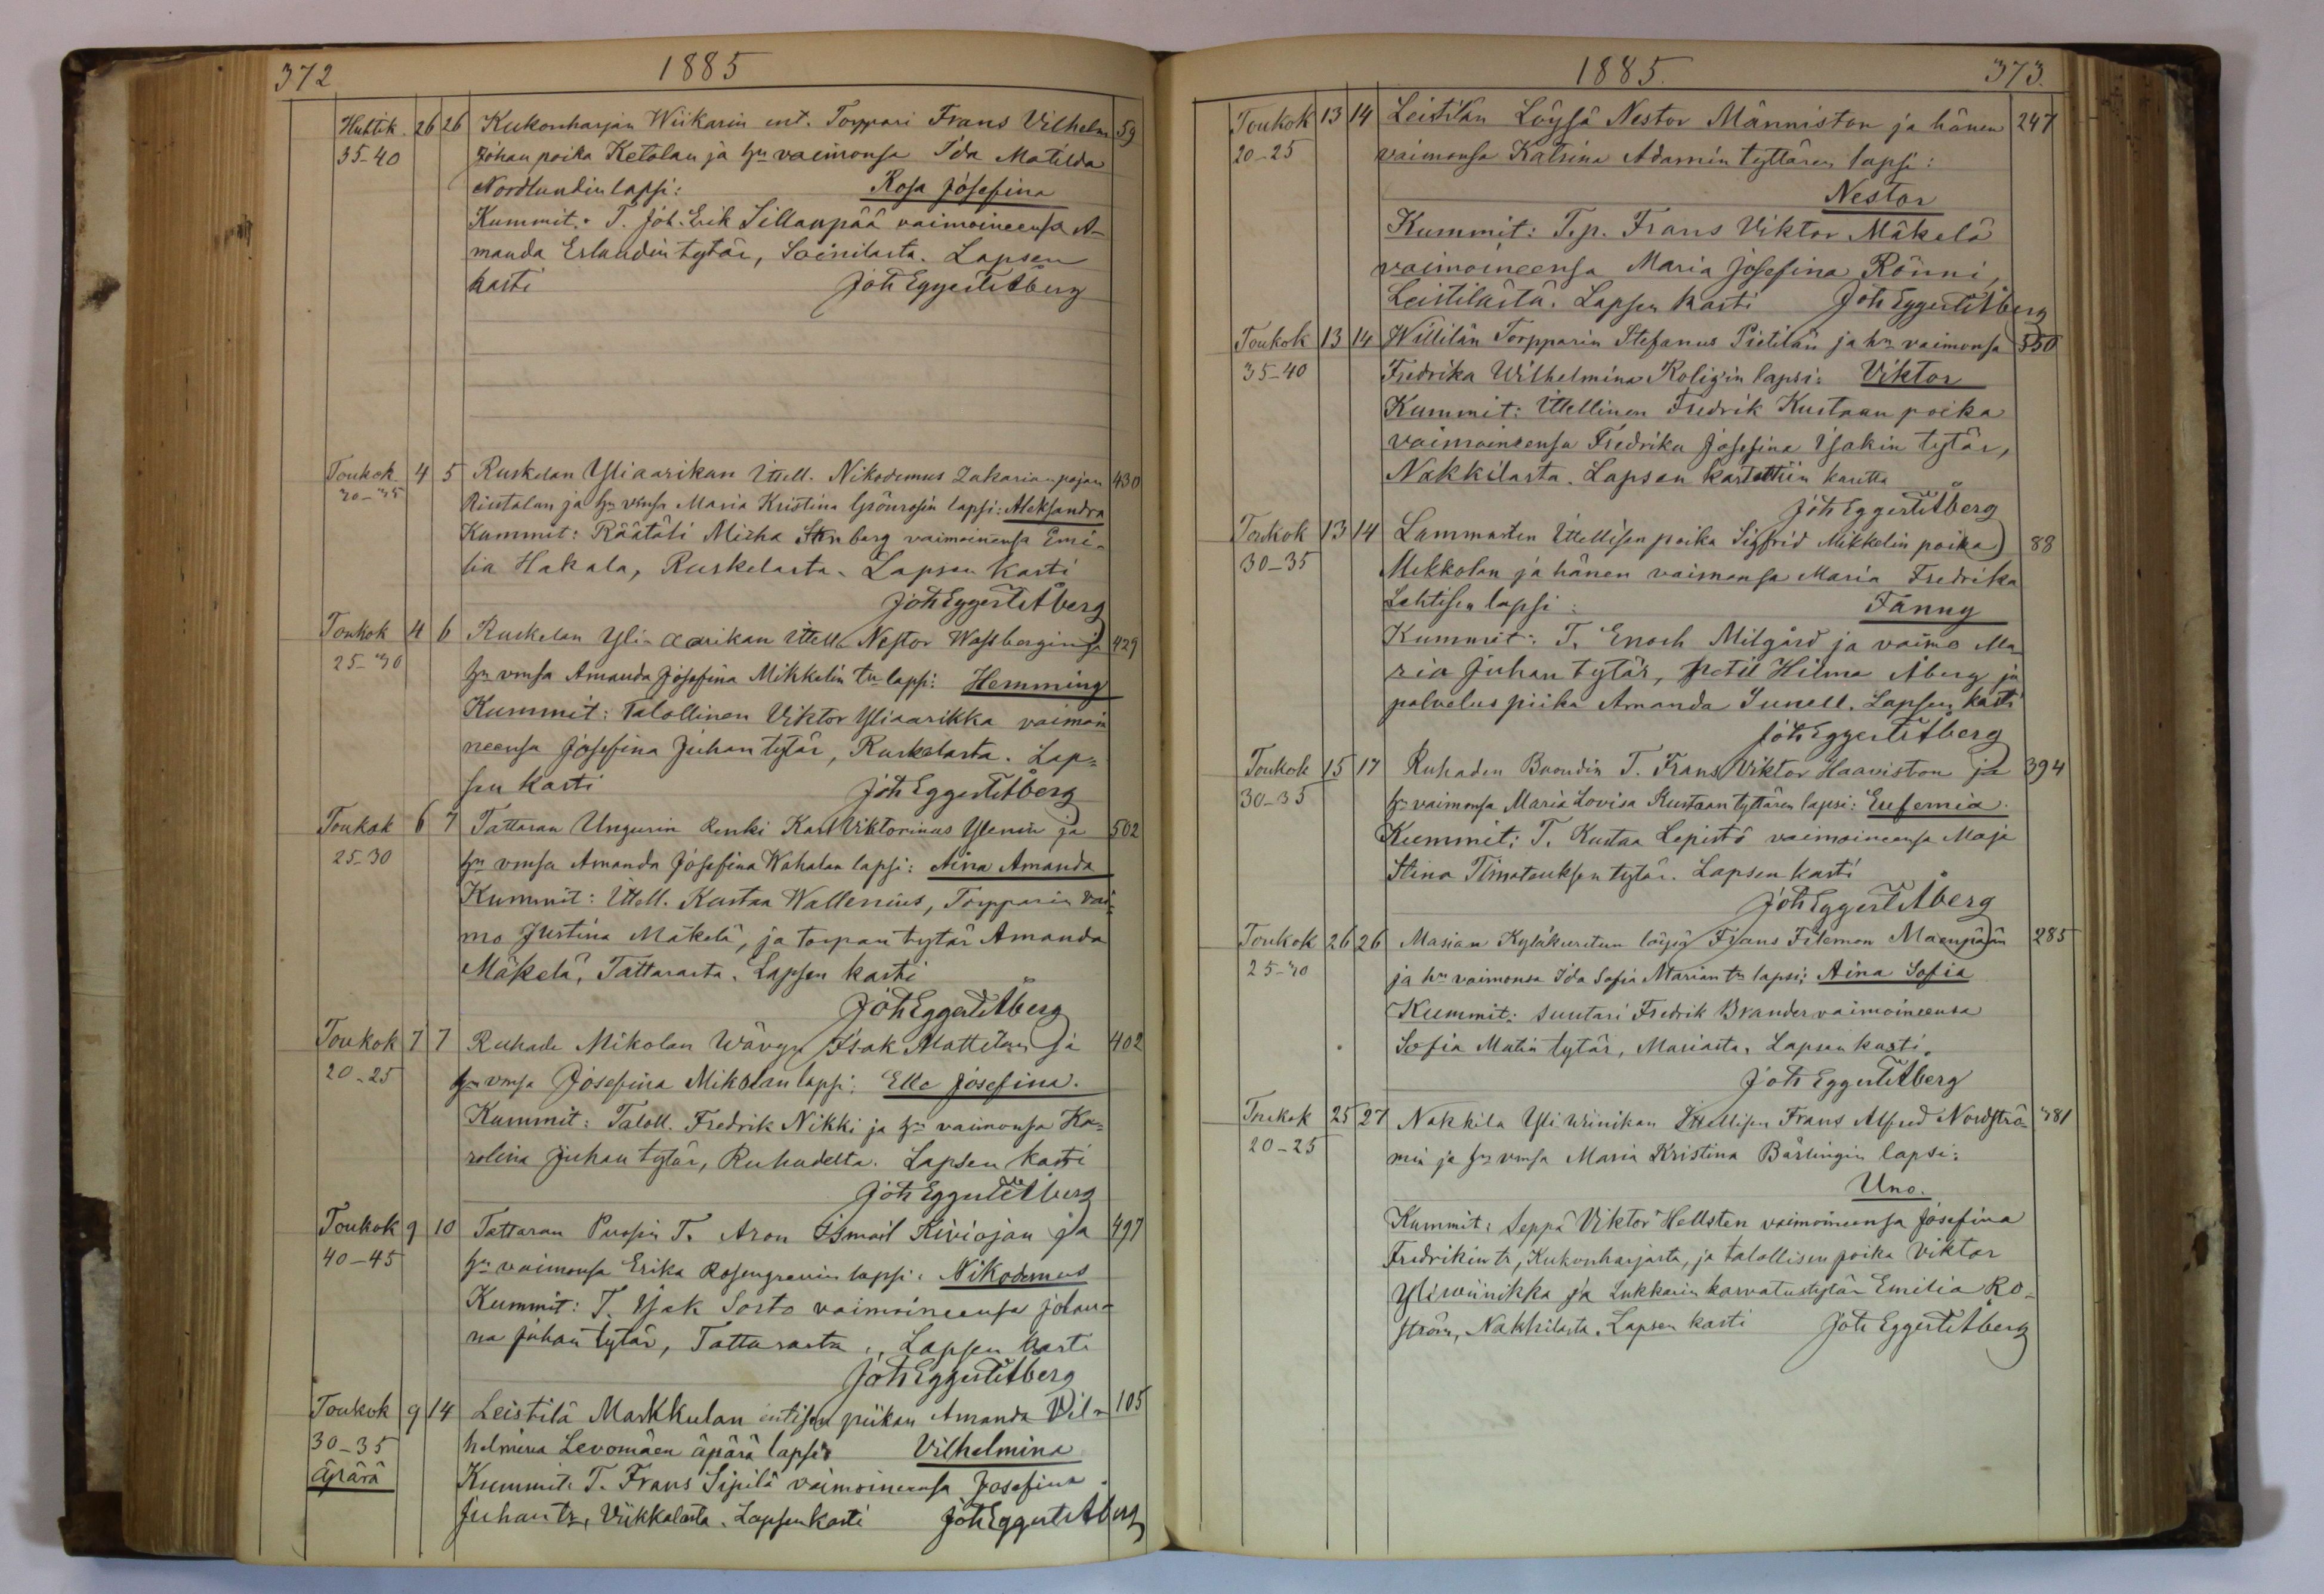 372
1885
Huhtik. 26 26 Kukonharjan Wiikarin ent. Torppari Frans Vilhelm 59
35-40 Johan poika Ketolan ja hn vaimonsa Ida Matilda
Nordlundin lapsi: Rosa Josefina
Kummit: T. Joh. Erik Sillanpää vaimoineensa A-
manda Erlandin tytär, Soinilasta. Lapsen
kasti Joh Eggert Åberg
Toukok 4 5 Ruskelan Yliaarikan Ittell. Nikodemus Zakarian pojan 430
30-35 Rintalan ja hn vmsa Maria Kristina Grönrosin lapsi: Aleksandra
Kummit: Räätäli Micha Stenberg vaimoinensa Emi-
lia Hakala, Ruskelasta. Lapsen kasti
Joh Eggert Åberg
Toukok 4 6 Ruskelan Yli-aarikan Ittell. Nestor Wassbergin ja 429
25-30 hn vmsa Amanda Josefina Mikkelin tn lapsi: Hemming
Kummit: Talollinen Viktor Yliaarikka vaimoi
neensa Josefina Juhan tytär, Ruskelasta. Lap=
sen kasti Joh Eggert Åberg
Toukok 6 7 Tattaran Ungurin Renki Karl Viktorinus Ylenin ja 502
25-30 hn vmsa Amanda Josefina Wahalan lapsi: Aina Amanda
Kummit: Ittell. Kustaa Wallenius, Torpparin vai=
mo Justina Mäkelä, ja torpan tytär Amanda
Mäkelä, Tattarasta. Lapsen kasti
Joh Eggert Åberg
Toukok 7 7 Ruhade Mikolan Wävyn Isak Mattilan ja 402
20-25 hn vmsa Josefina Mikolan lapsi: Elle Josefina.
Kummit: Taloll. Fredrik Nikki ja hn vaimonsa Ka=
rolina Juhan tytär, Ruhadelta. Lapsen kasti
Joh Eggert Åberg
Toukok 9 10 Tattaran Puosin T. Aron Ismail Kiviojan ja 497
40-45 hn vaimonsa Erika Rosengrenin lapsi: Nikodemus
Kummit: T. Isak Sorto vaimoineensa Johan-
na Juhan tytär, Tattarasta, Lapsen kasti
Joh Eggert Åberg
Toukok 9 14 Leistilä Markkulan entisen piikan Amanda Vil= 105
30-35 helmina Levomäen äpärä lapsi: Vilhelmina
äpärä Kummit: T. Frans Sipilä vaimoineensa Josefina
Juhan tr, Viikkalasta. Lapsen kasti Joh Eggert Åberg
1885.
373.
Toukok 13 14 Leistilän Löysä Nestor Männiston ja hänen 247
20-25 vaimonsa Katrina Adamin tyttären lapsi:
Nestor
Kummit: T.p. Frans Viktor Mäkelä
vaimoineensa Maria Josefina Rönni,
Leistilästä. Lapsen kasti Joh Eggert Åberg
Toukok 13 14 Willilän Torpparin Stefanus Pietilän ja hn vaimonsa 550
35-40 Fredrika Wilhelmina Roligin lapsi: Viktor
Kummit: Ittellinen Fredrik Kustaan poika
vaimoineensa Fredrika Josefina Isakin tytär,
Nakkilasta. Lapsen kastettiin kautta
Joh Eggert Åberg
Toukok 13 14 Lammasten Ittellisen poika Sigfrid Mikkelin poika 88
30-35 Mikkolan ja hänen vaimonsa Maria Fredrika
Lehtisen lapsi: Fanny
Kummit: T. Enoch Milgård ja vaimo Ma-
ria Juhan tytär, Hilma Åberg ja
palveluspiika Amanda Sunell. Lapsen kasti
Joh Eggert Åberg
Toukok 15 17 Ruhaden Buondin T. Frans Viktor Haaviston ja 394
30-35 hn vaimonsa Maria Lovisa Kustaan tyttären lapsi: Eufemia.
Kummit: T. Kustaa Lepistö vaimoineensa Maja
Stina Timoteuksen tytär. Lapsen kasti
Joh Eggert Åberg
Toukok 26 26 Masian Kyläkuritun löysä Frans Filemon Maenpään 285
25-30 ja hn vaimonsa Ida Sofia Marian tn lapsi: Aina Sofia
Kummit: Suutari Fredrik Brander vaimoineensa
Sofia Matin tytär, Masiasta. Lapsen kasti.
Joh Eggert Åberg
Toukok 25 27 Nakkila Yli Wiinikan Ittellisen Frans Alfred Nordströ- 381
20-25 min ja hn vmsa Maria Kristina Bärlingin lapsi:
Uno.
Kummit: Seppä Viktor Hellsten vaimoineensa Josefina
Fredrikin tr, Kukonharjasta, ja talollisen poika Viktor
Yliwiinikka ja Lukkarin kasvatustytär Emilia Ro-
ström, Nakkilasta. Lapsen kasti Joh Eggert Åberg